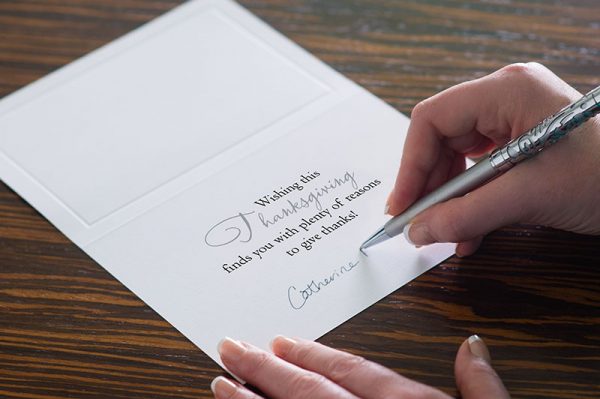 Wishing this
Thanksgiving
finds you with plenty of reasons
to give thanks!
Catherine